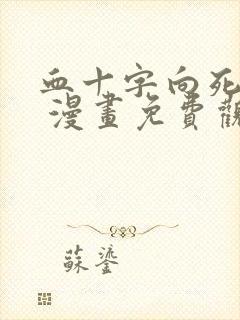 血十字向死
漫畫免費觀
蘇鎏